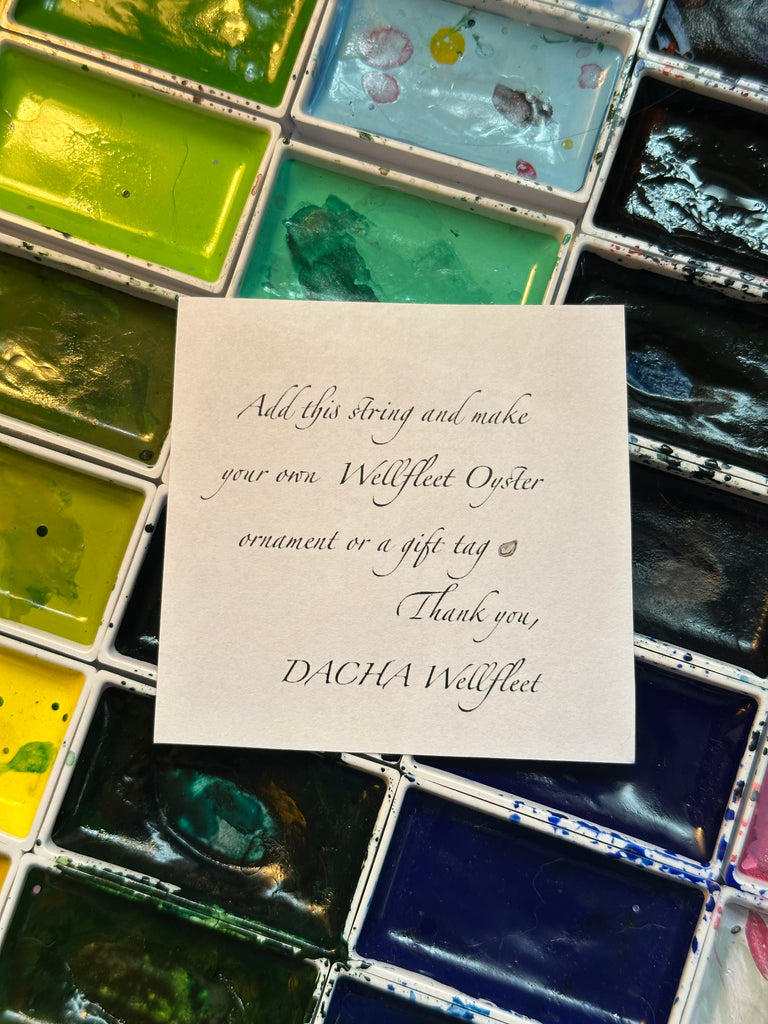 Add this string and make
your own Wellfleet Oyster
ornament or a gift tag
Thank you,
DACHA Wellfleet